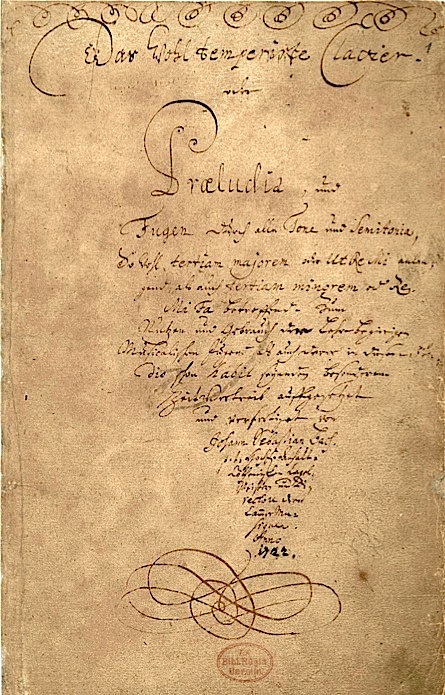 Das Wohltemperirte Clavier.
oder
Præludia, und
Fugen durch alle Tone und Semitonia,
So wohl tertiam majorem oder Ut Re Mi anlan-
gend, als auch tertiam minorem oder Re
Mi Fa betreffend. Zum
Nutzen und Gebrauch der Lehrbegierigen
Musicalischen Jugend, als auch derer in diesem
studio schon habil seyenden besonderem
Zeitvertreib auffgesetzet
und verfertiget von
Johann Sebastian Bach.
p. t. Hochfürstlich
Cöthenischen Capel-
Meistern und Di-
rectore derer
Cammer Mu-
siquen.
Anno
1722.